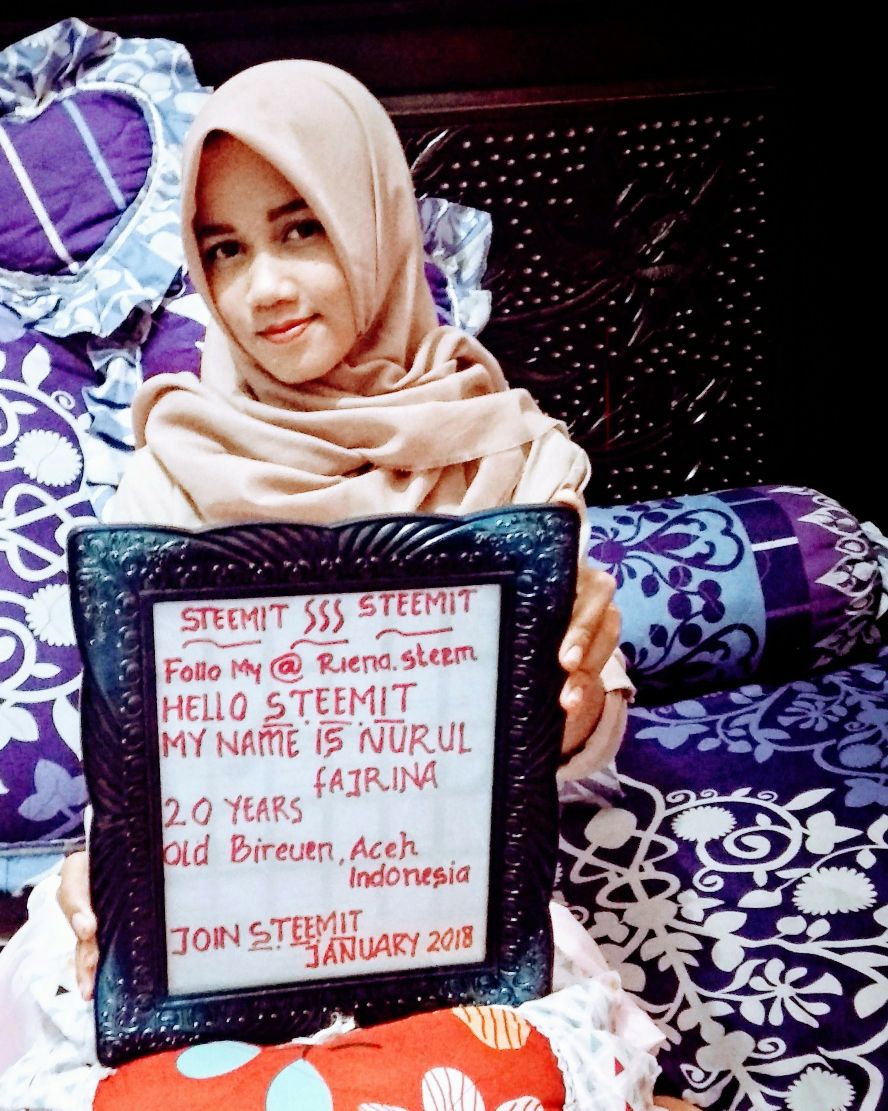 STEEMIT $$$ STEEMIT
Follo My @ Riena.steem
HELLO STEEMIT
MY NAME IS NURUL
fAJRINA
20 YEARS
Old Bireuen, Aceh
Indonesia
JOIN STEEMIT
JANUARY 2018